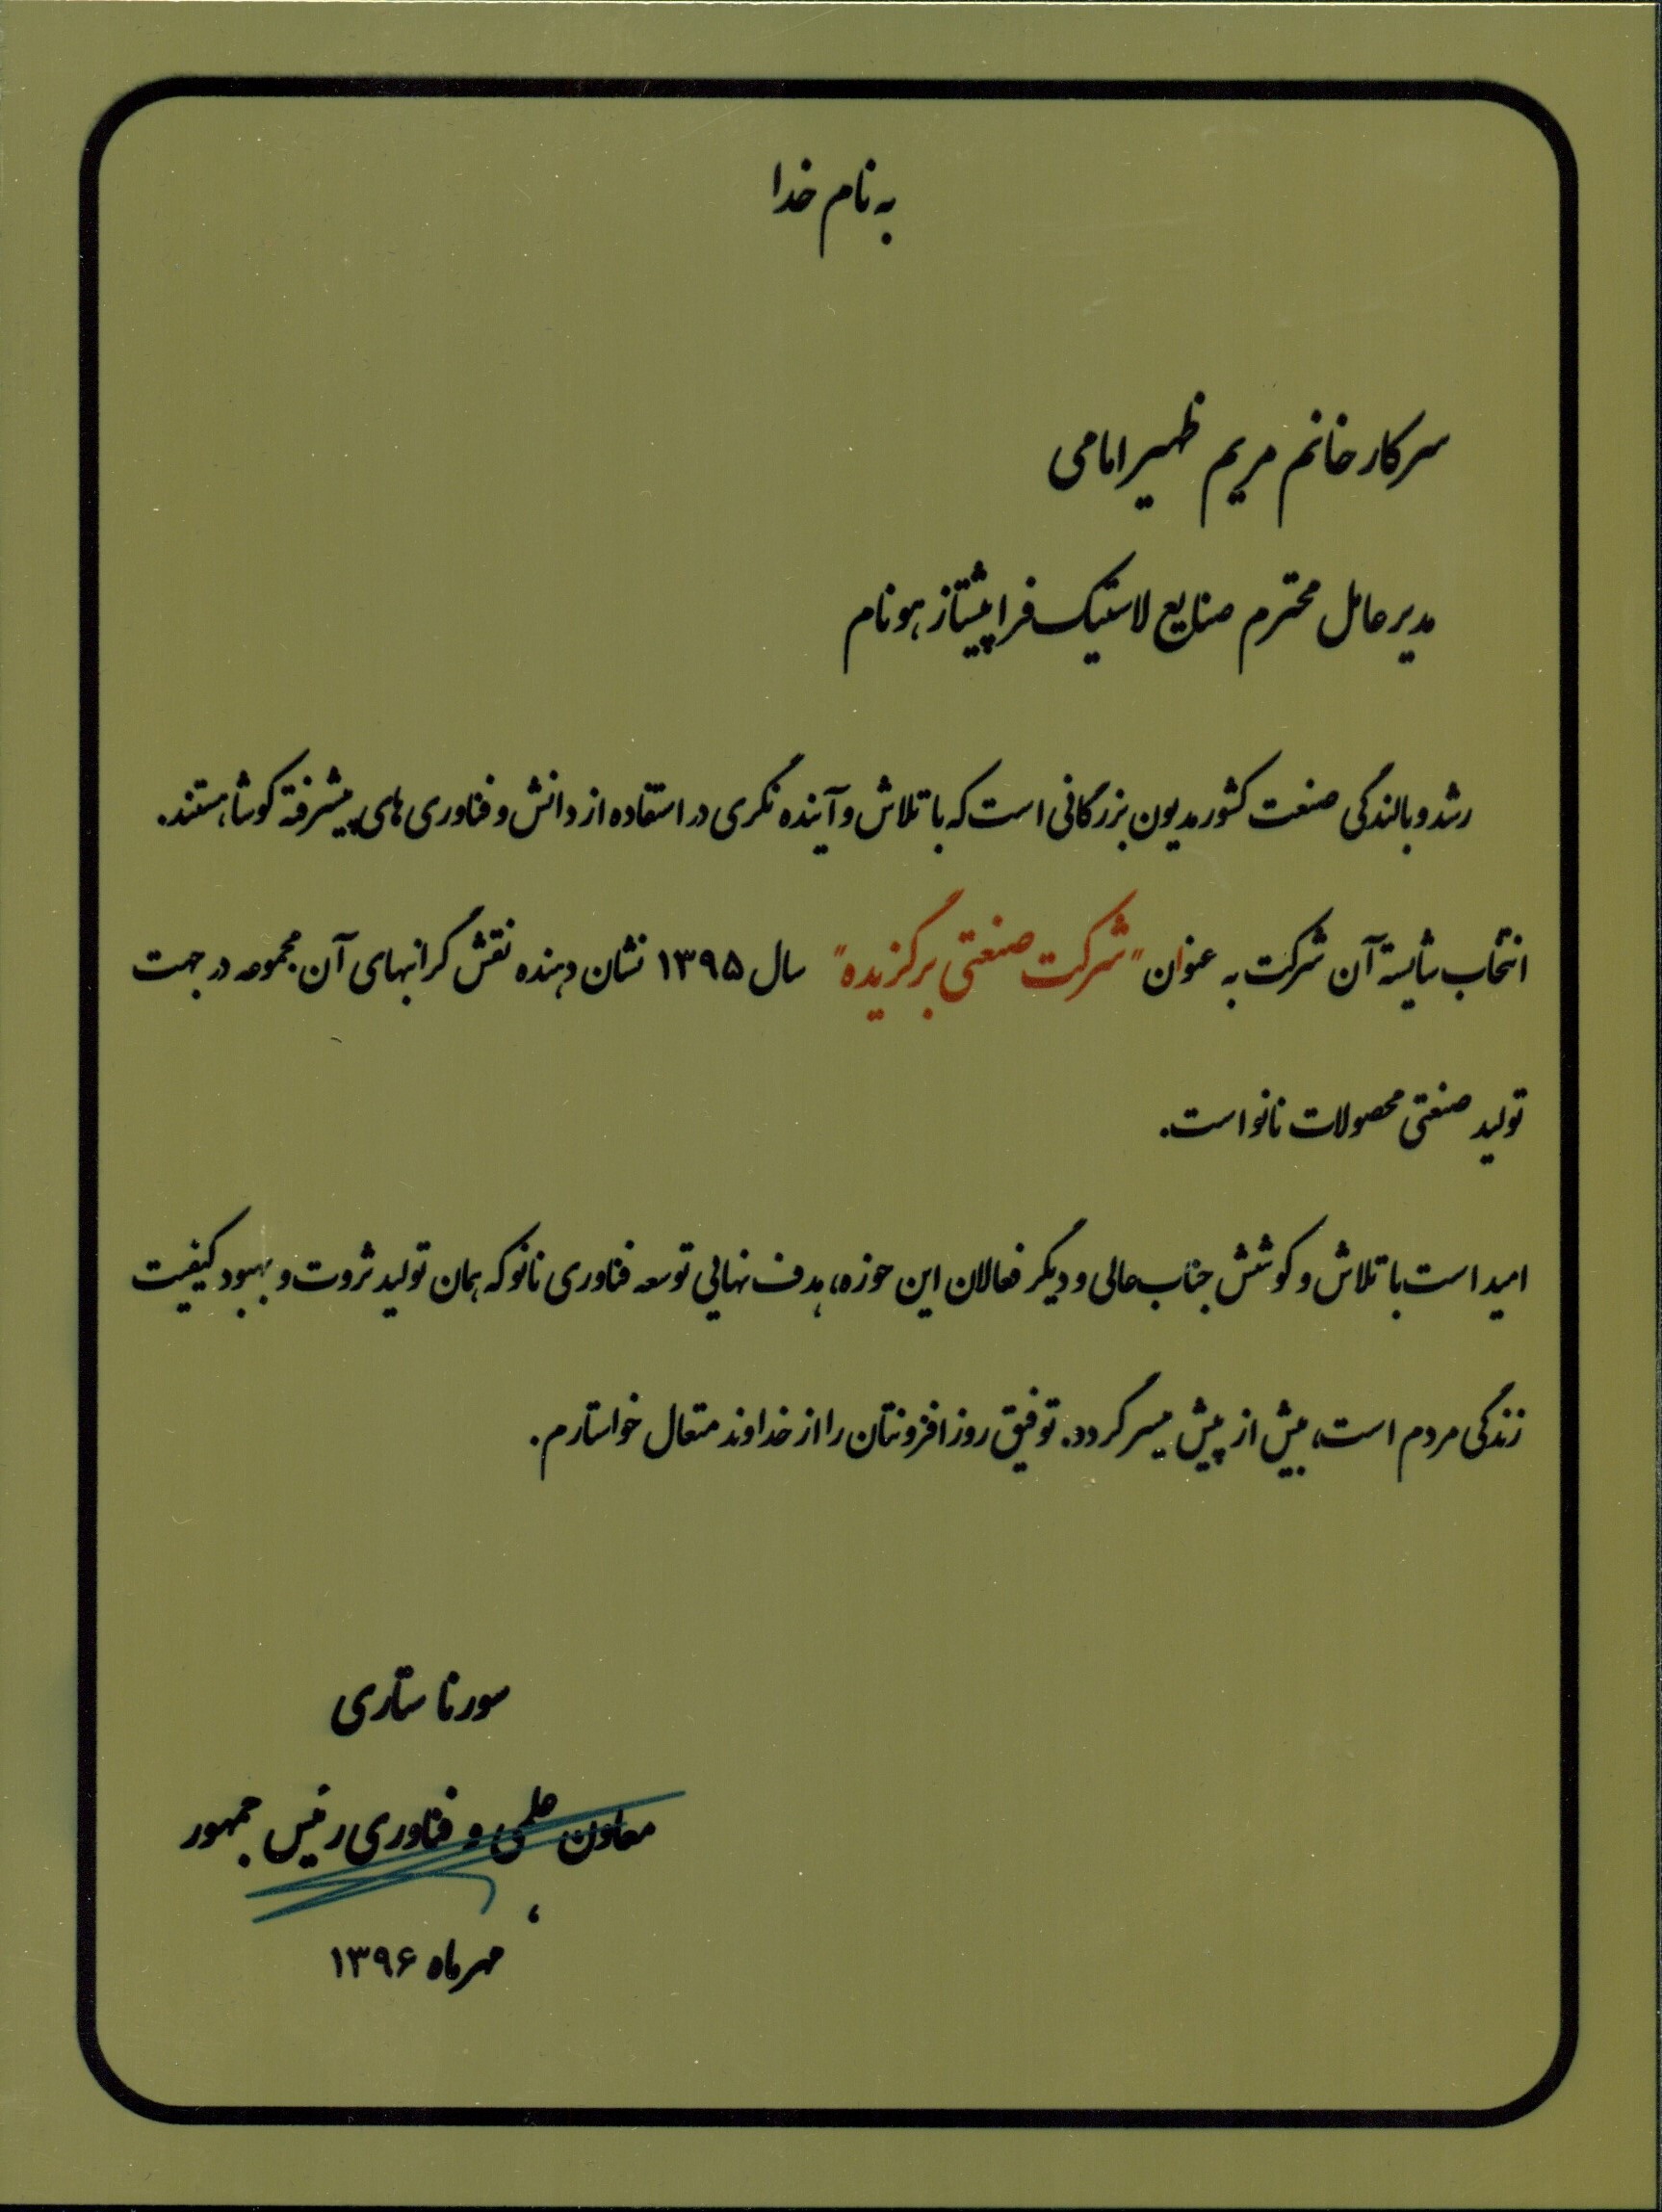 به نام خدا
سرکار خانم مریم ظهیر امامی
مدیر عامل محترم صنایع لاستیک فرا پیشتاز هونام
رشد و بالندگی صنعت کشور مدیون بزرگانی است که با تلاش و آینده نگری در استفاده از دانش و فناوری های پیشرفته کوشا هستند.
انتخاب شایسته آن شرکت به عنوان "شرکت صنعتی برگزیده" سال ۱۳۹۵ نشان دهنده نقش گرانبهای آن مجموعه در جهت
تولید صنعتی محصولات نانو است.
امید است با تلاش و کوشش جناب عالی و دیگر فعالان این حوزه، هدف نهایی توسعه فناوری نانو که همان تولید ثروت و بهبود کیفیت
زندگی مردم است، بیش از پیش میسر گردد. توفیق روز افزونتان را از خداوند متعال خواستارم.
سورنا ستاری
معاون علمی و فناوری رئیس جمهور
مهر ماه ۱۳۹۶